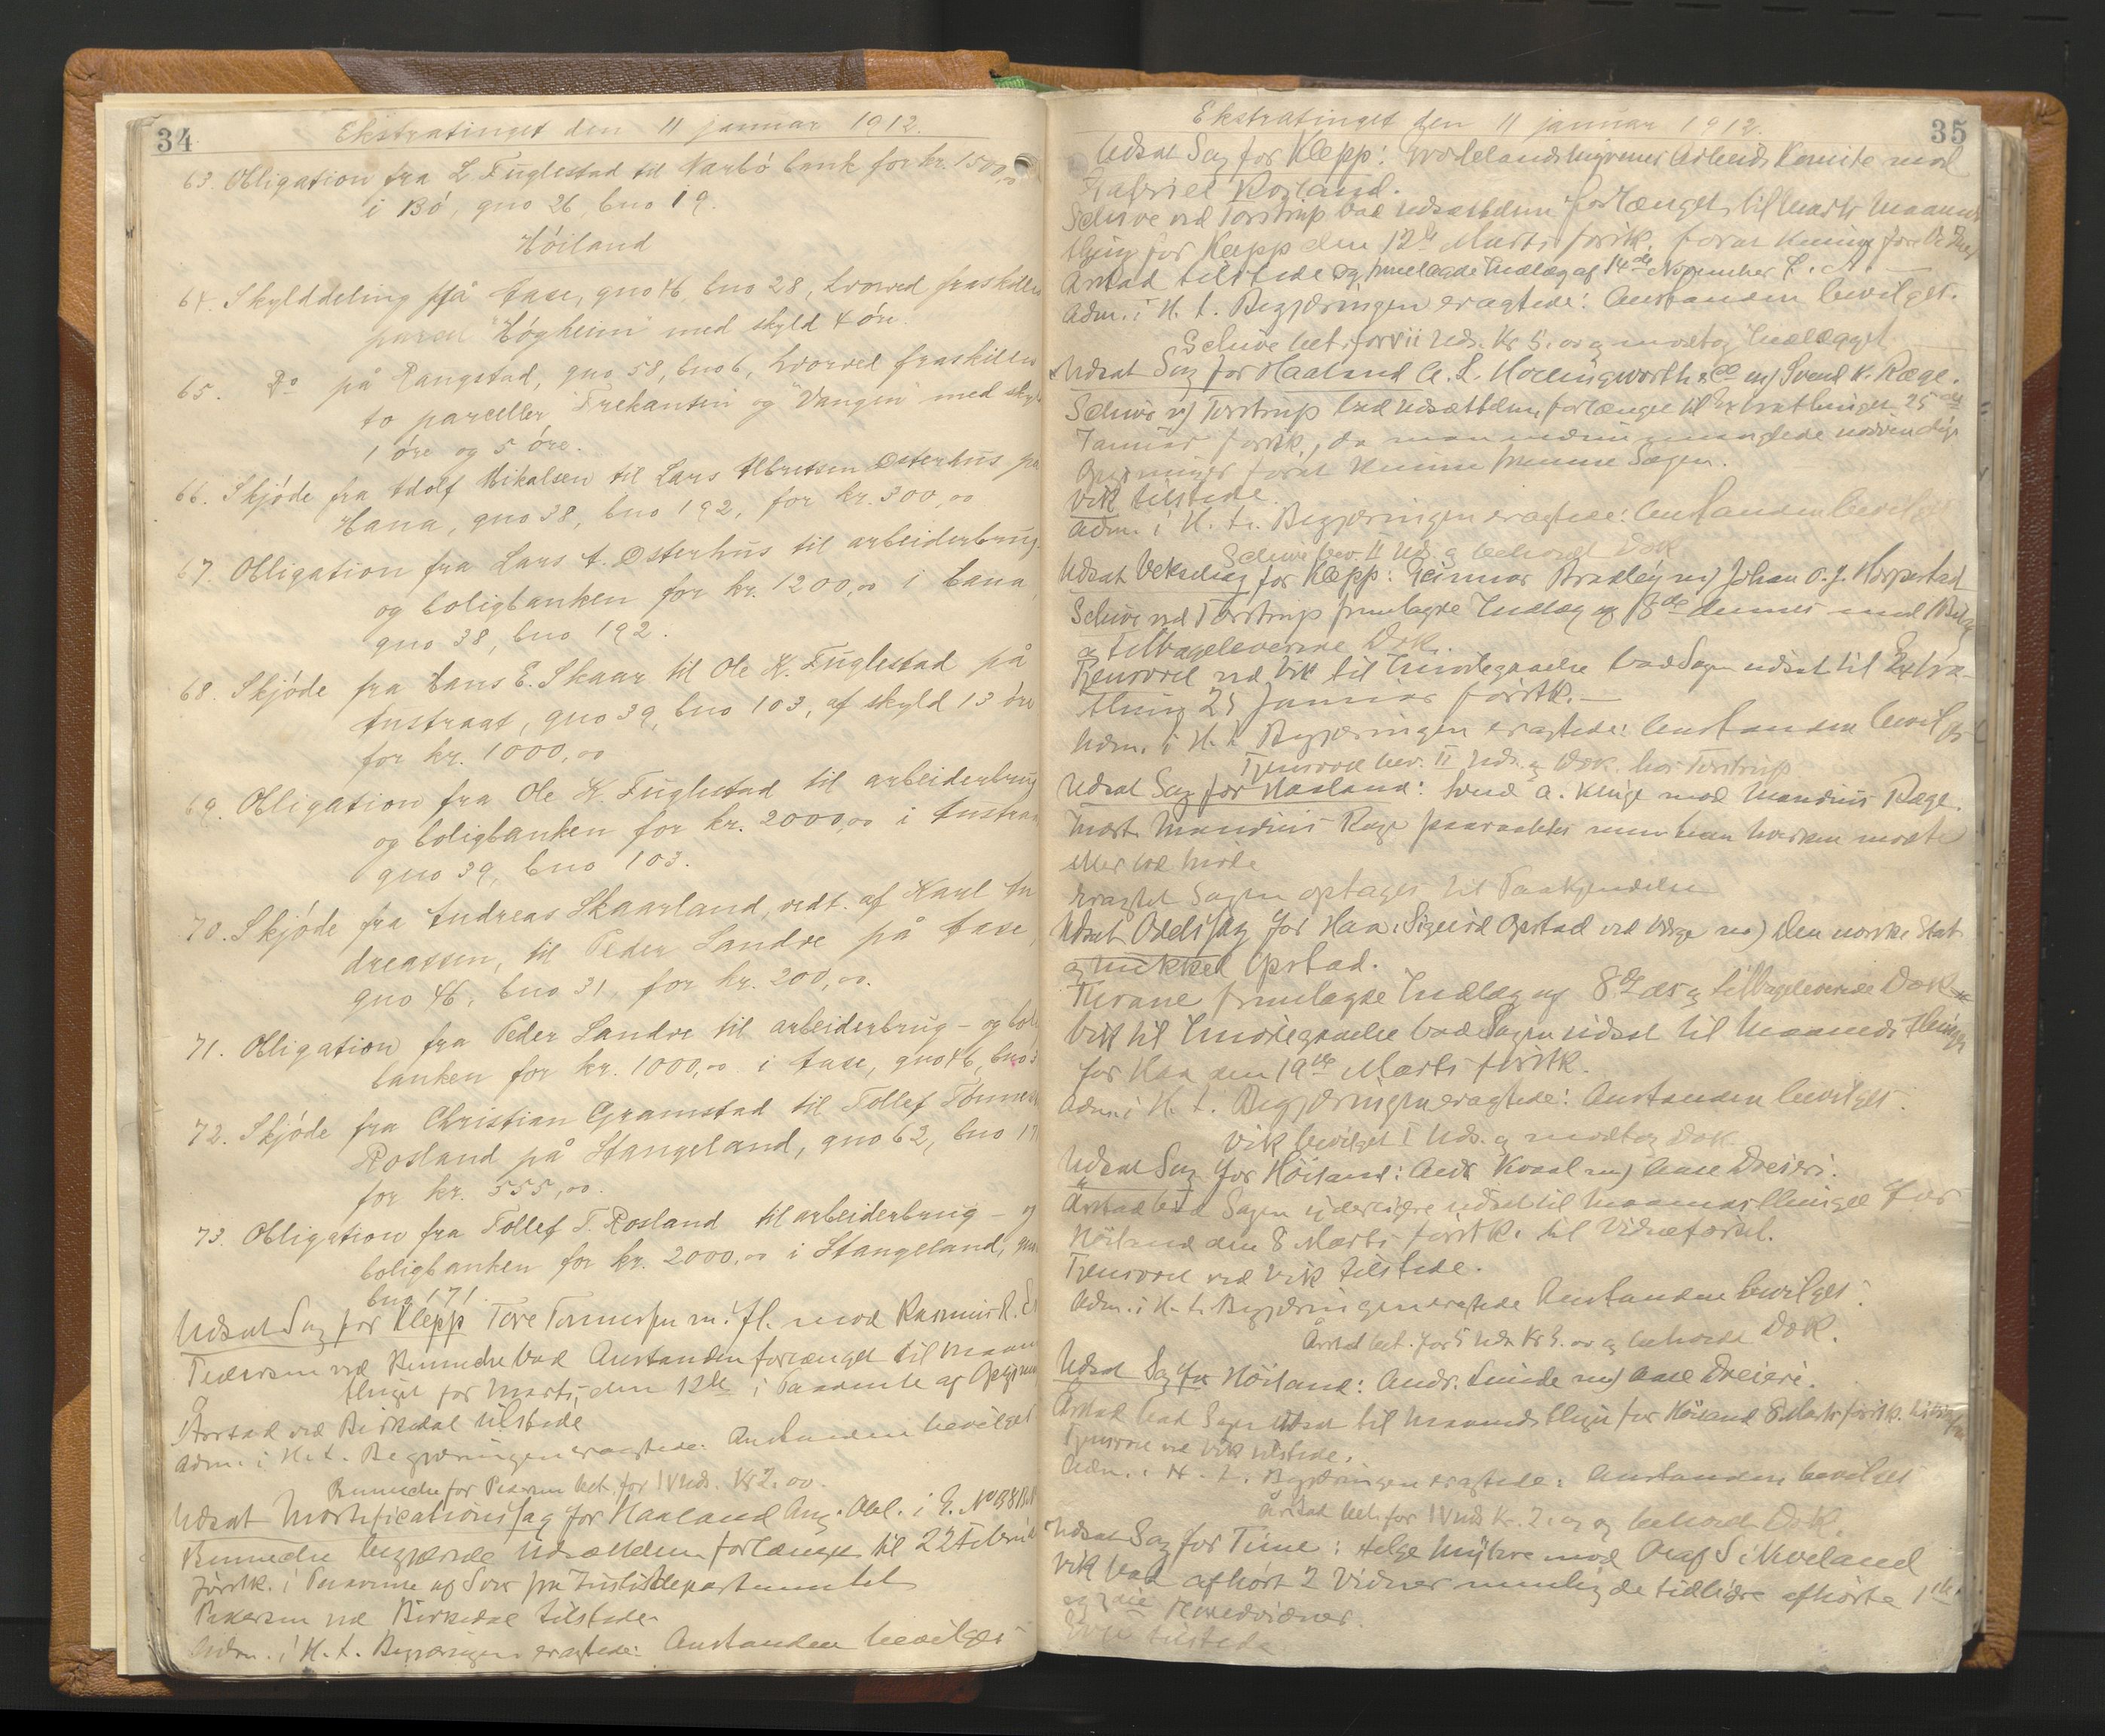 34
Ekstratinget den 11 januar 1912.
63. Obligation fra L. Fuglestad til Narbö bank for kr. 1500,00
i Bö, gno 26, bno 19.
Höiland
64. Skylddeling på Aase, gno 46, bno 28, hvorved fraskilles
parcel "Högheim" med skyld 4 öre.
65. Do på Rangstad, gno 58, bno 6, hvorved fraskilles
to parceller "Trekanten" og "Vangen" med skyld
1 öre og 5 öre.
66. Skjöde fra Adolf Mikalsen til Lars Albretsen Osterhus på
Hana, gno 38, bno 192, for kr. 300,00
67. Obligation fra Lars A. Osterhus til arbeiderbrug-
og boligbanken for kr. 1200,00 i Hana
gno 38, bno 192.
68. Skjöde fra Hans E. Skaar til Ole K. Fuglestad på
Austraat, gno 39, bno 103, af skyld 13 öre
for kr. 1000,00
69. Obligation fra Ole K. Fuglestad til arbeiderbrug
og boligbanken for kr. 2000,00 i Austraat
gno 39, bno 103.
70. Skjöde fra Andreas Skaarland, vedt. af Karl An
dreassen, til Peder Sandve på Aase,
gno 46, bno 31, for kr. 200,00.
71. Obligation fra Peder Sandve til arbeiderbrug- og bolig
banken for kr. 1000,00 i Aase, gno 46, bno 3
72. Skjöde fra Christian Gramstad til Tollef Tönnes
Rosland på Stangeland, gno 62, bno 171
for kr. 555,00.
73. Obligation fra Tollef T. Rosland til arbeiderbrug- og
boligbanken for kr. 2000,00 i Stangeland, gno
bno 171.
Udsat Sag for Klepp Tore Tonnesen m. fl. mod Rasmus R.
Pedersen ved bad Anstanden forlænget til Maaneds
thinget for Marts, den 12te i Paavente af
Årstad ved Birkedal tilstede
Adm. i H. t. Begjæringen eragtede: Anstanden bevilget
for Pedersen bet. for IV Uds. Kr 2.00.
Udsat Mortifikationssag for Haaland Ang. Obl.
begjærede Udsættelsen forlænget til 22 Februar
förstk. i Paavente af Svar fra Justisdepartementet
ved Birkedal tilstede
Adm. i H. t. Begjæringen eragtede: Anstanden bevilges
35
Ekstratinget den 11 januar 1912.
Udsat Sag for Klepp: Arbeids Komite mod
Gabriel Roiland.
Schive ved Torstrup bad Udsættelsen forlænget til Marts Maaneds
thing for Klepp den 12te Marts förstk.
Årstad tilstede og fremlagde Indlæg af 14de November f. A.
Adm. i H. t. Begjæringen eragtede: Anstanden bevilget.
Schive bet. for VII Uds. Kr 5.00 og modtog Indlægget
Udsat Sag for Haaland A. L. Hollingworth & Co m/ Svend K. Ræge.
Schive v/ Torstrup bad Udsættelsen forlænget til Extrathinget 25de
Januar förstk., da man endnu manglede nödvendige
Opgjörelser forat kunne fremme Sagen.
Vik tilstede.
Adm. i H. t. Begjæringen eragtede: Anstanden bevilget
Schive bev. II Uds. og beholdt Dok
Udsat Vekselsag for Klepp: Gunnar Bradley m/ Johan O. J. Horpestad
Schive ved Torstrup fremlagde Indlæg af 8de dennes med Bilag
og tilbageleverede Dok.
Tjensvold ved Vik til Imödegaaelse bad Sagen udsat til Extra-
thing 25 Januar förstk.
Adm. i H. t. Begjæringen eragtede: Anstanden bevilget
Tjensvold bev. II Uds. og Dok. hos Torstrup
Udsat Sag for Haaland: Svend A. Kluge mod Mandius Ræge.
Indst. Mandius Ræge paaraabtes men han hverken mödte
eller lod möde
Eragtet Sagen optages til Paakjendelse
Udsat Odelssag for Haa: Sigurd Opstad ved Værge m/ Den norske Stat
og Mikkel Opstad.
Turane fremlagde Indlæg af 8de ds og tilbageleverede Dok
Vik til Imödegaaelse bad Sagen udsat til Maanedsthinget
for Haa den 19de Marts förstk.
Adm. i H. t. Begjæringen eragtede: Anstanden bevilget.
Vik bevilget I Uds. og modtog Dok.
Udsat Sag for Höiland: Andr. Kvaal m/ Aase Dreieri.
Årstad bad Sagen yderligere udsat til Maanedsthinget for
Höiland den 8 Marts förstk. til Vidneförsel.
Tjensvold ved Vik tilstede.
Adm. i H. t. Begjæringen eragtede Anstanden bevilget.
Årstad bet. for 5 Uds. Kr 3.00 og beholdt Dok.
Udsat Sag for Höiland: Andr. Lunde m/ Aase Dreieri.
Årstad bad Sagen udsat til Maanedsthinget for Höiland 8 Marts förstk.
Tjensvold ved Vik tilstede.
Adm. i H. t. Begjæringen eragtede: Anstanden bevilget
Årstad bet. for IV Uds Kr. 2.00 og beholdt Dok.
Udsat Sag for Time: Helge Myhre mod Olaf S. Kveland
Vik bad afhört 2 Vidner nemlig de tidligere afhörte 1ste
og 2det Hovedvidner.
tilstede